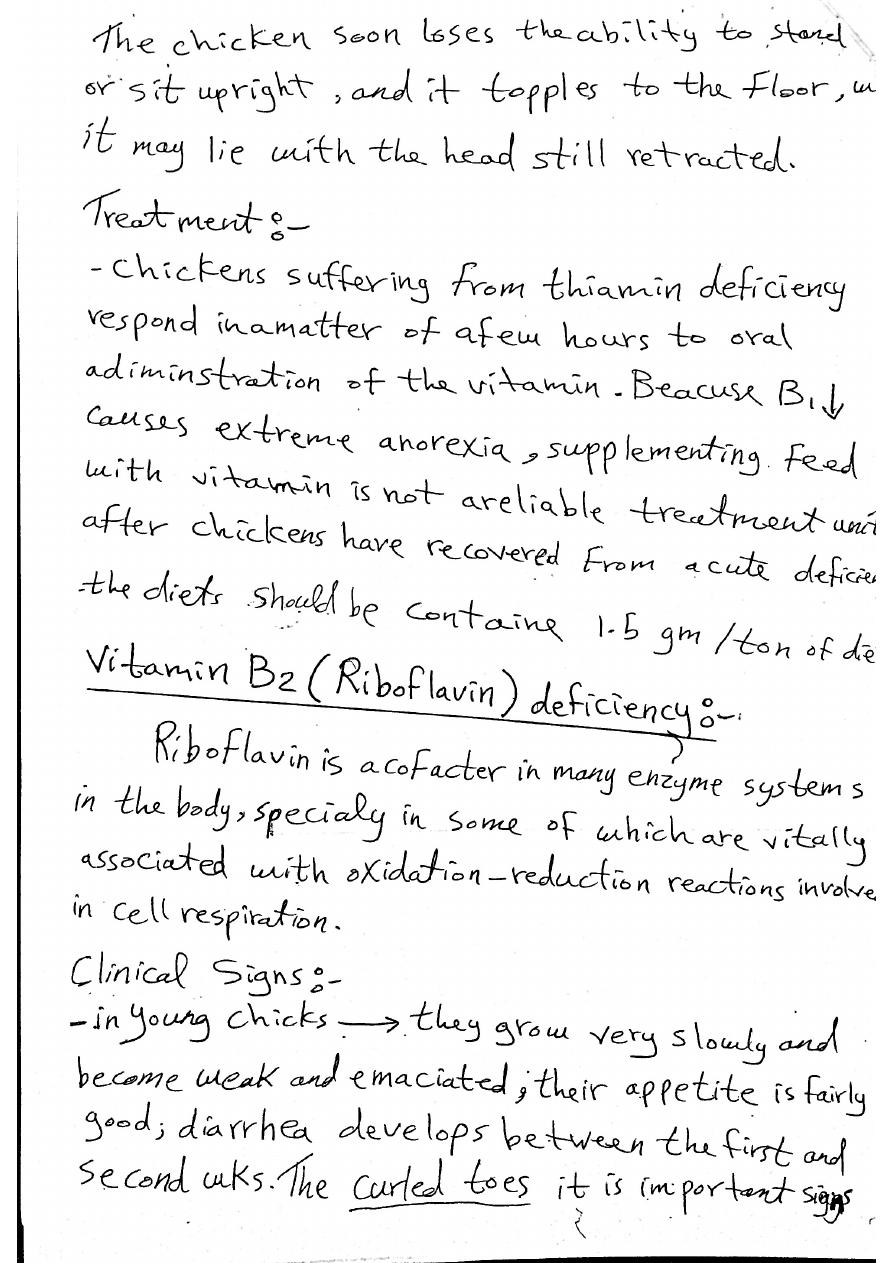 The chicken soon loses the ability to stand
or sit upright, and it topples to the floor, w
it may lie with the head still retracted.
Treatment:-
- Chickens suffering from thiamin deficiency
respond in a matter of a few hours to oral
adiminstration of the vitamin. Beacuse B1↓
Causes extreme anorexia, supplementing feed
with vitamin is not a reliable treatment unt
after chickens have recovered From acute deficie
the diets should be containe 1.5 gm/ton of die
Vitamin B2 (Riboflavin) deficiency:-
Riboflavin is a cofacter in many enzyme systems
in the body, specialy in some of which are vitally
associated with oxidation-reduction reactions involve
in cell respiration.
Clinical Signs:-
- in young chicks → they grow very slowly and
become weak and emaciated; their appetite is fairly
good; diarrhea develops between the first and
second wks. The curled toes it is important signs